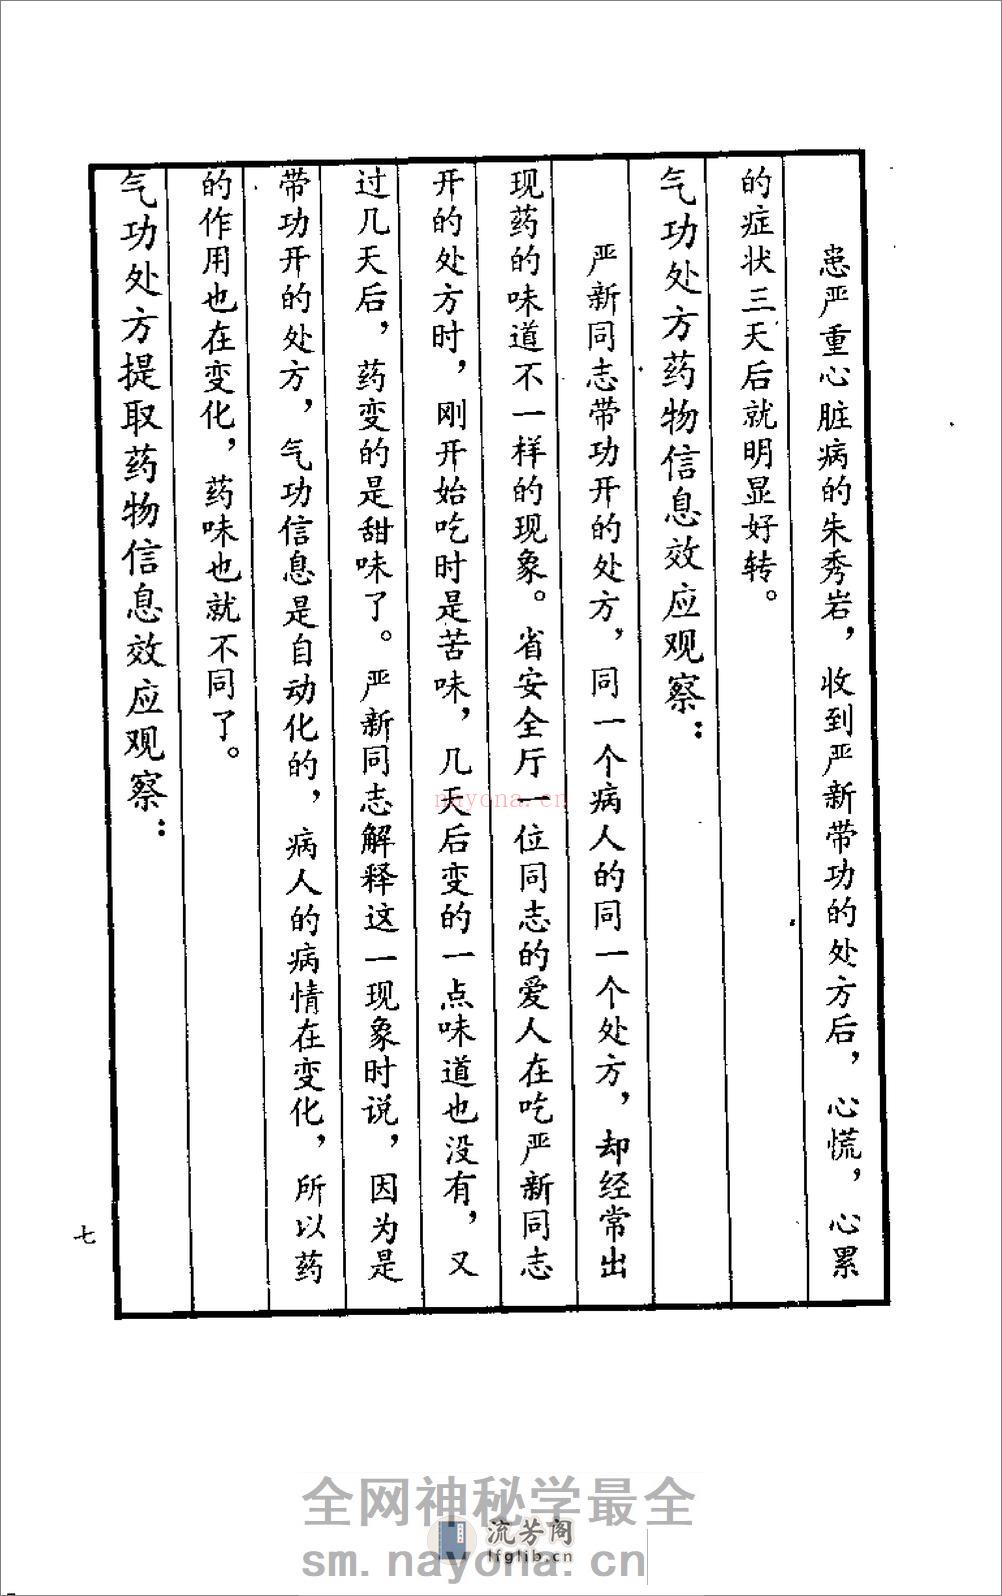 患严重心脏病的朱秀岩，收到严新带功的处方后，心慌，心累
的症状三天后就明显好转。
气功处方药物信息效应观察：
严新同志带功开的处方，同一个病人的同一个处方，却经常出
现药的味道不一样的现象。省安全厅一位同志的爱人在吃严新同志
开的处方时，刚开始吃时是苦味，几天后变的一点味道也没有，又
过几天后，药变的是甜味了。严新同志解释这一现象时说，因为是
带功开的处方，气功信息是自动化的，病人的病情在变化，所以药
的作用也在变化，药味也就不同了。
气功处方提取药物信息效应观察：
七
nayona.cn
全网神秘学最全
流芳阁
lfglib.cn
sm.nayona.cn